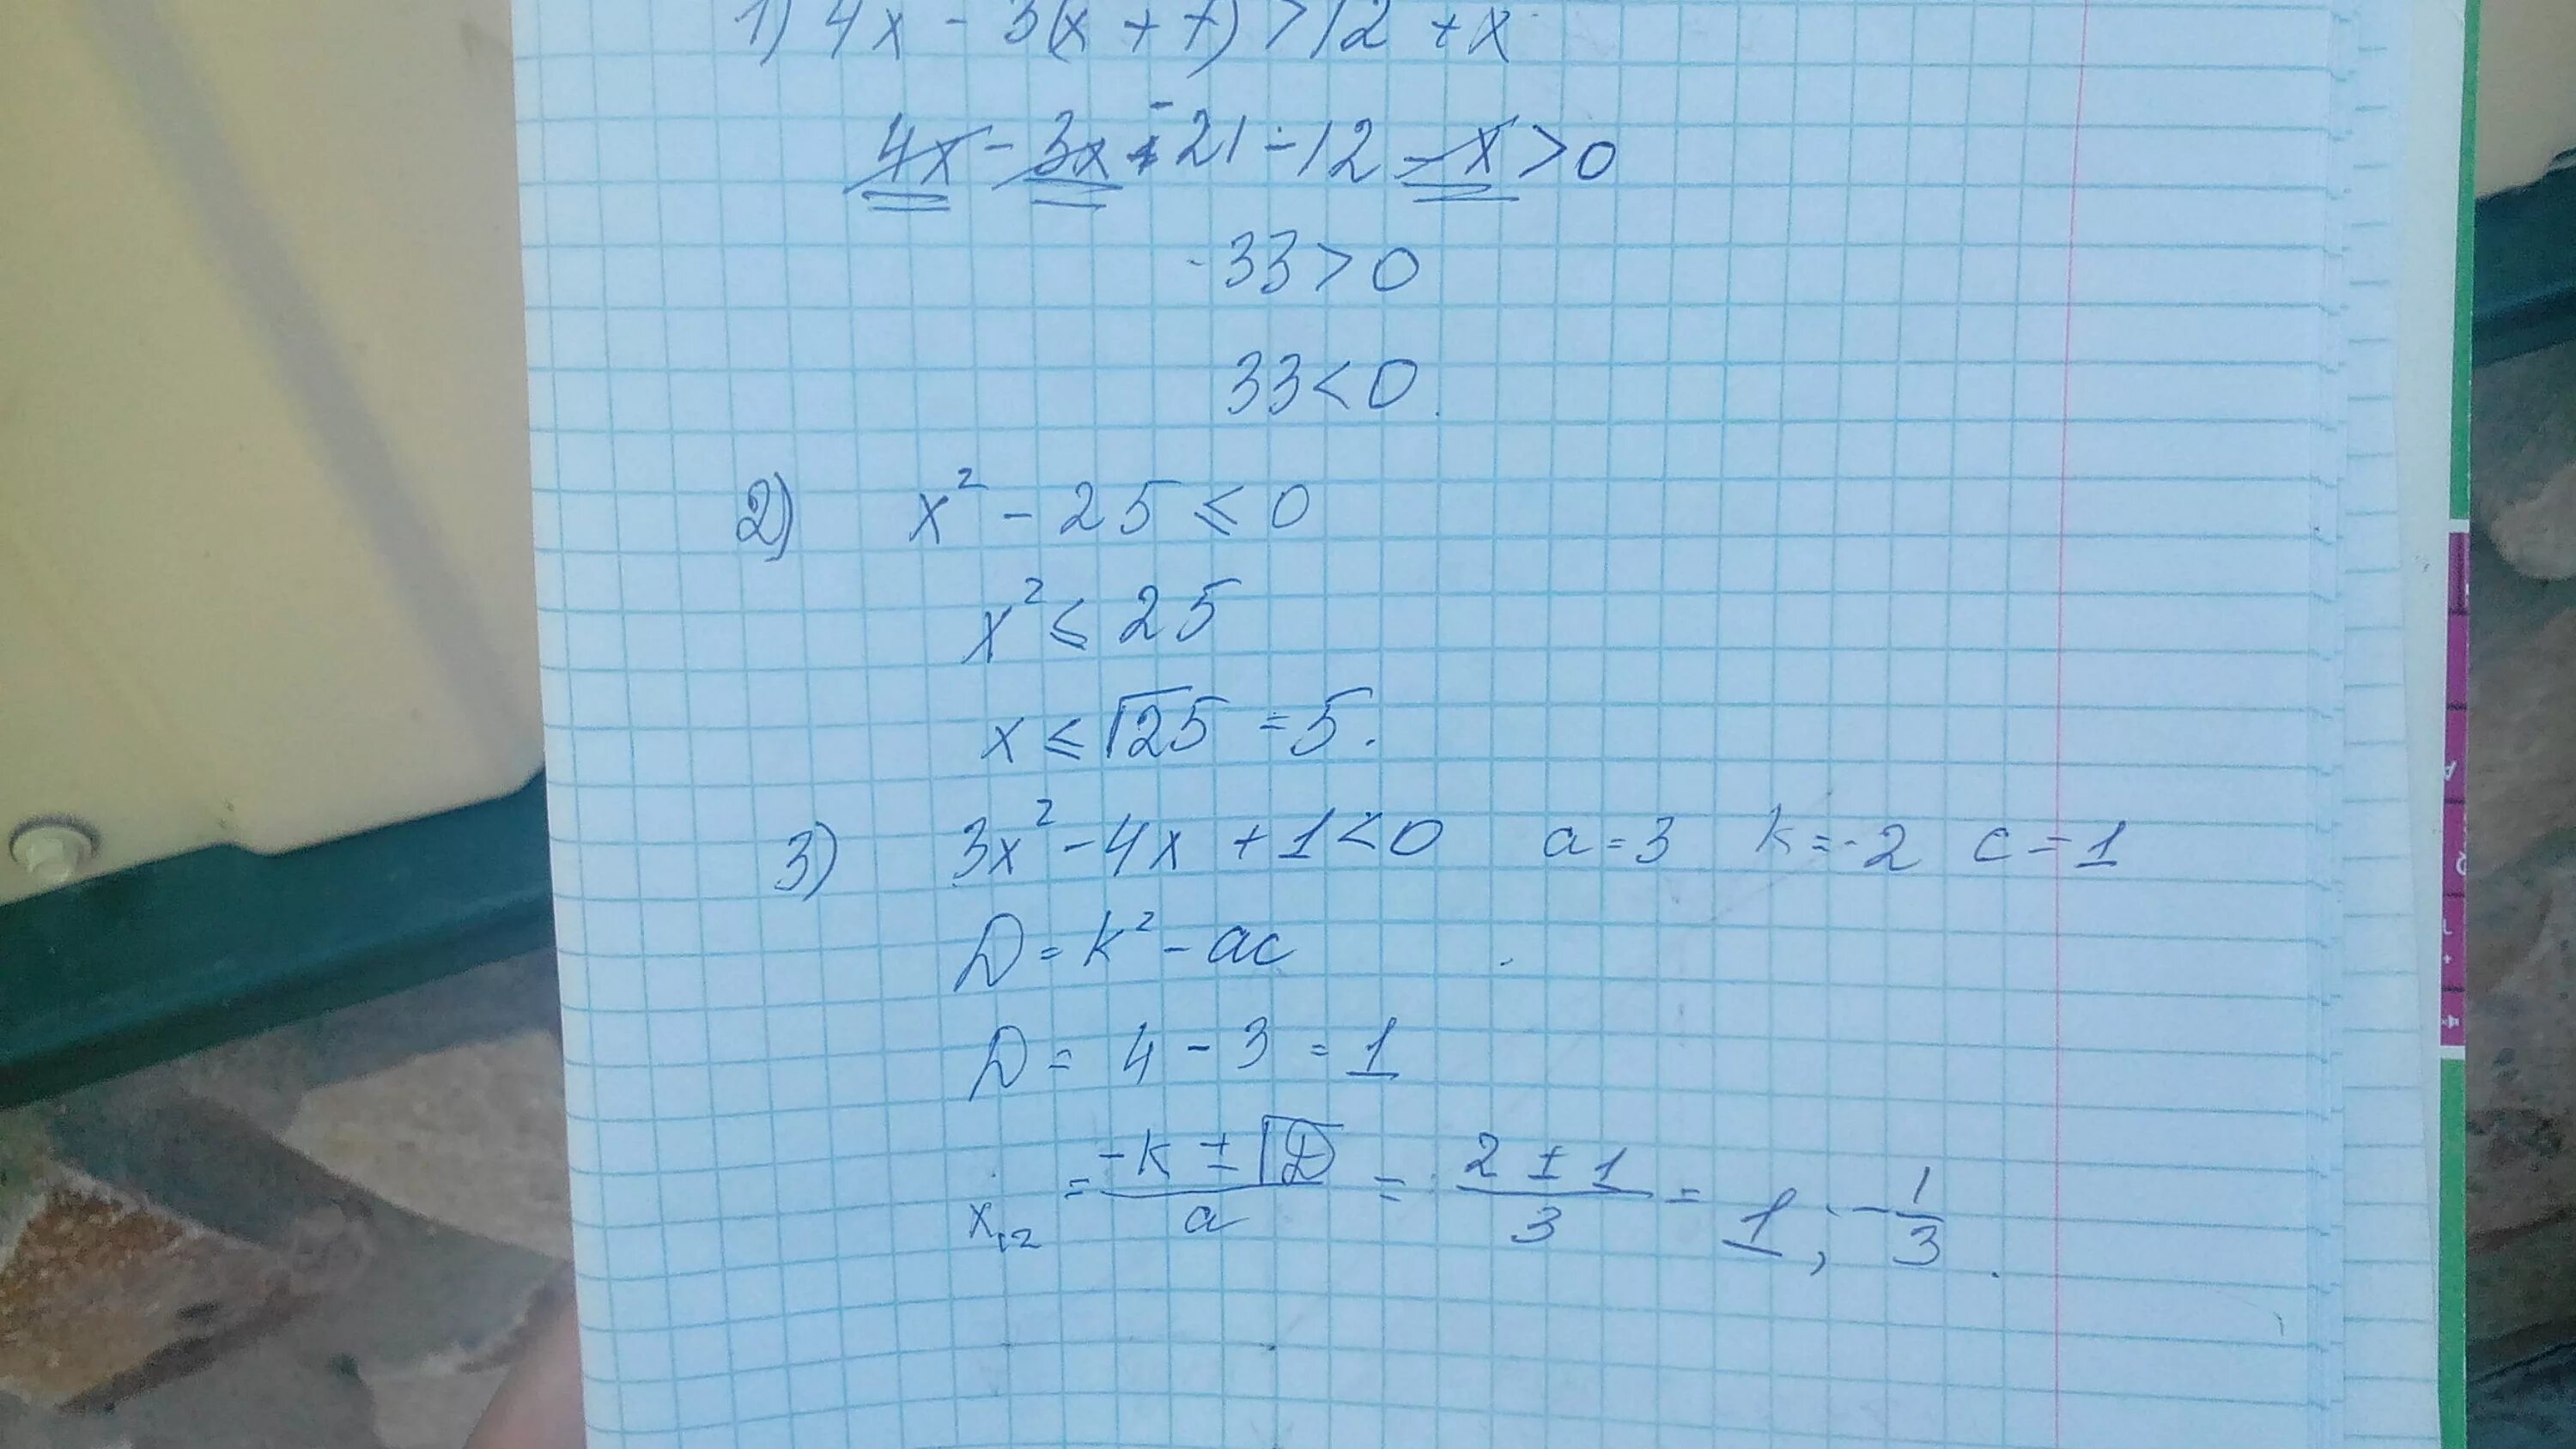 1) 4x - 3(x + 7) > 12 + x
4x - 3x - 21 - 12 - x > 0
-33 > 0
33 < 0.
2) x² - 25 ≤ 0
x² ≤ 25
x ≤ √25 = 5.
3) 3x² - 4x + 1 < 0 a = 3 k = -2 c = 1
D = k² - ac
D = 4 - 3 = 1
x₁,₂ = (-k ± √D)/a = (2 ± 1)/3 = 1; -1/3.